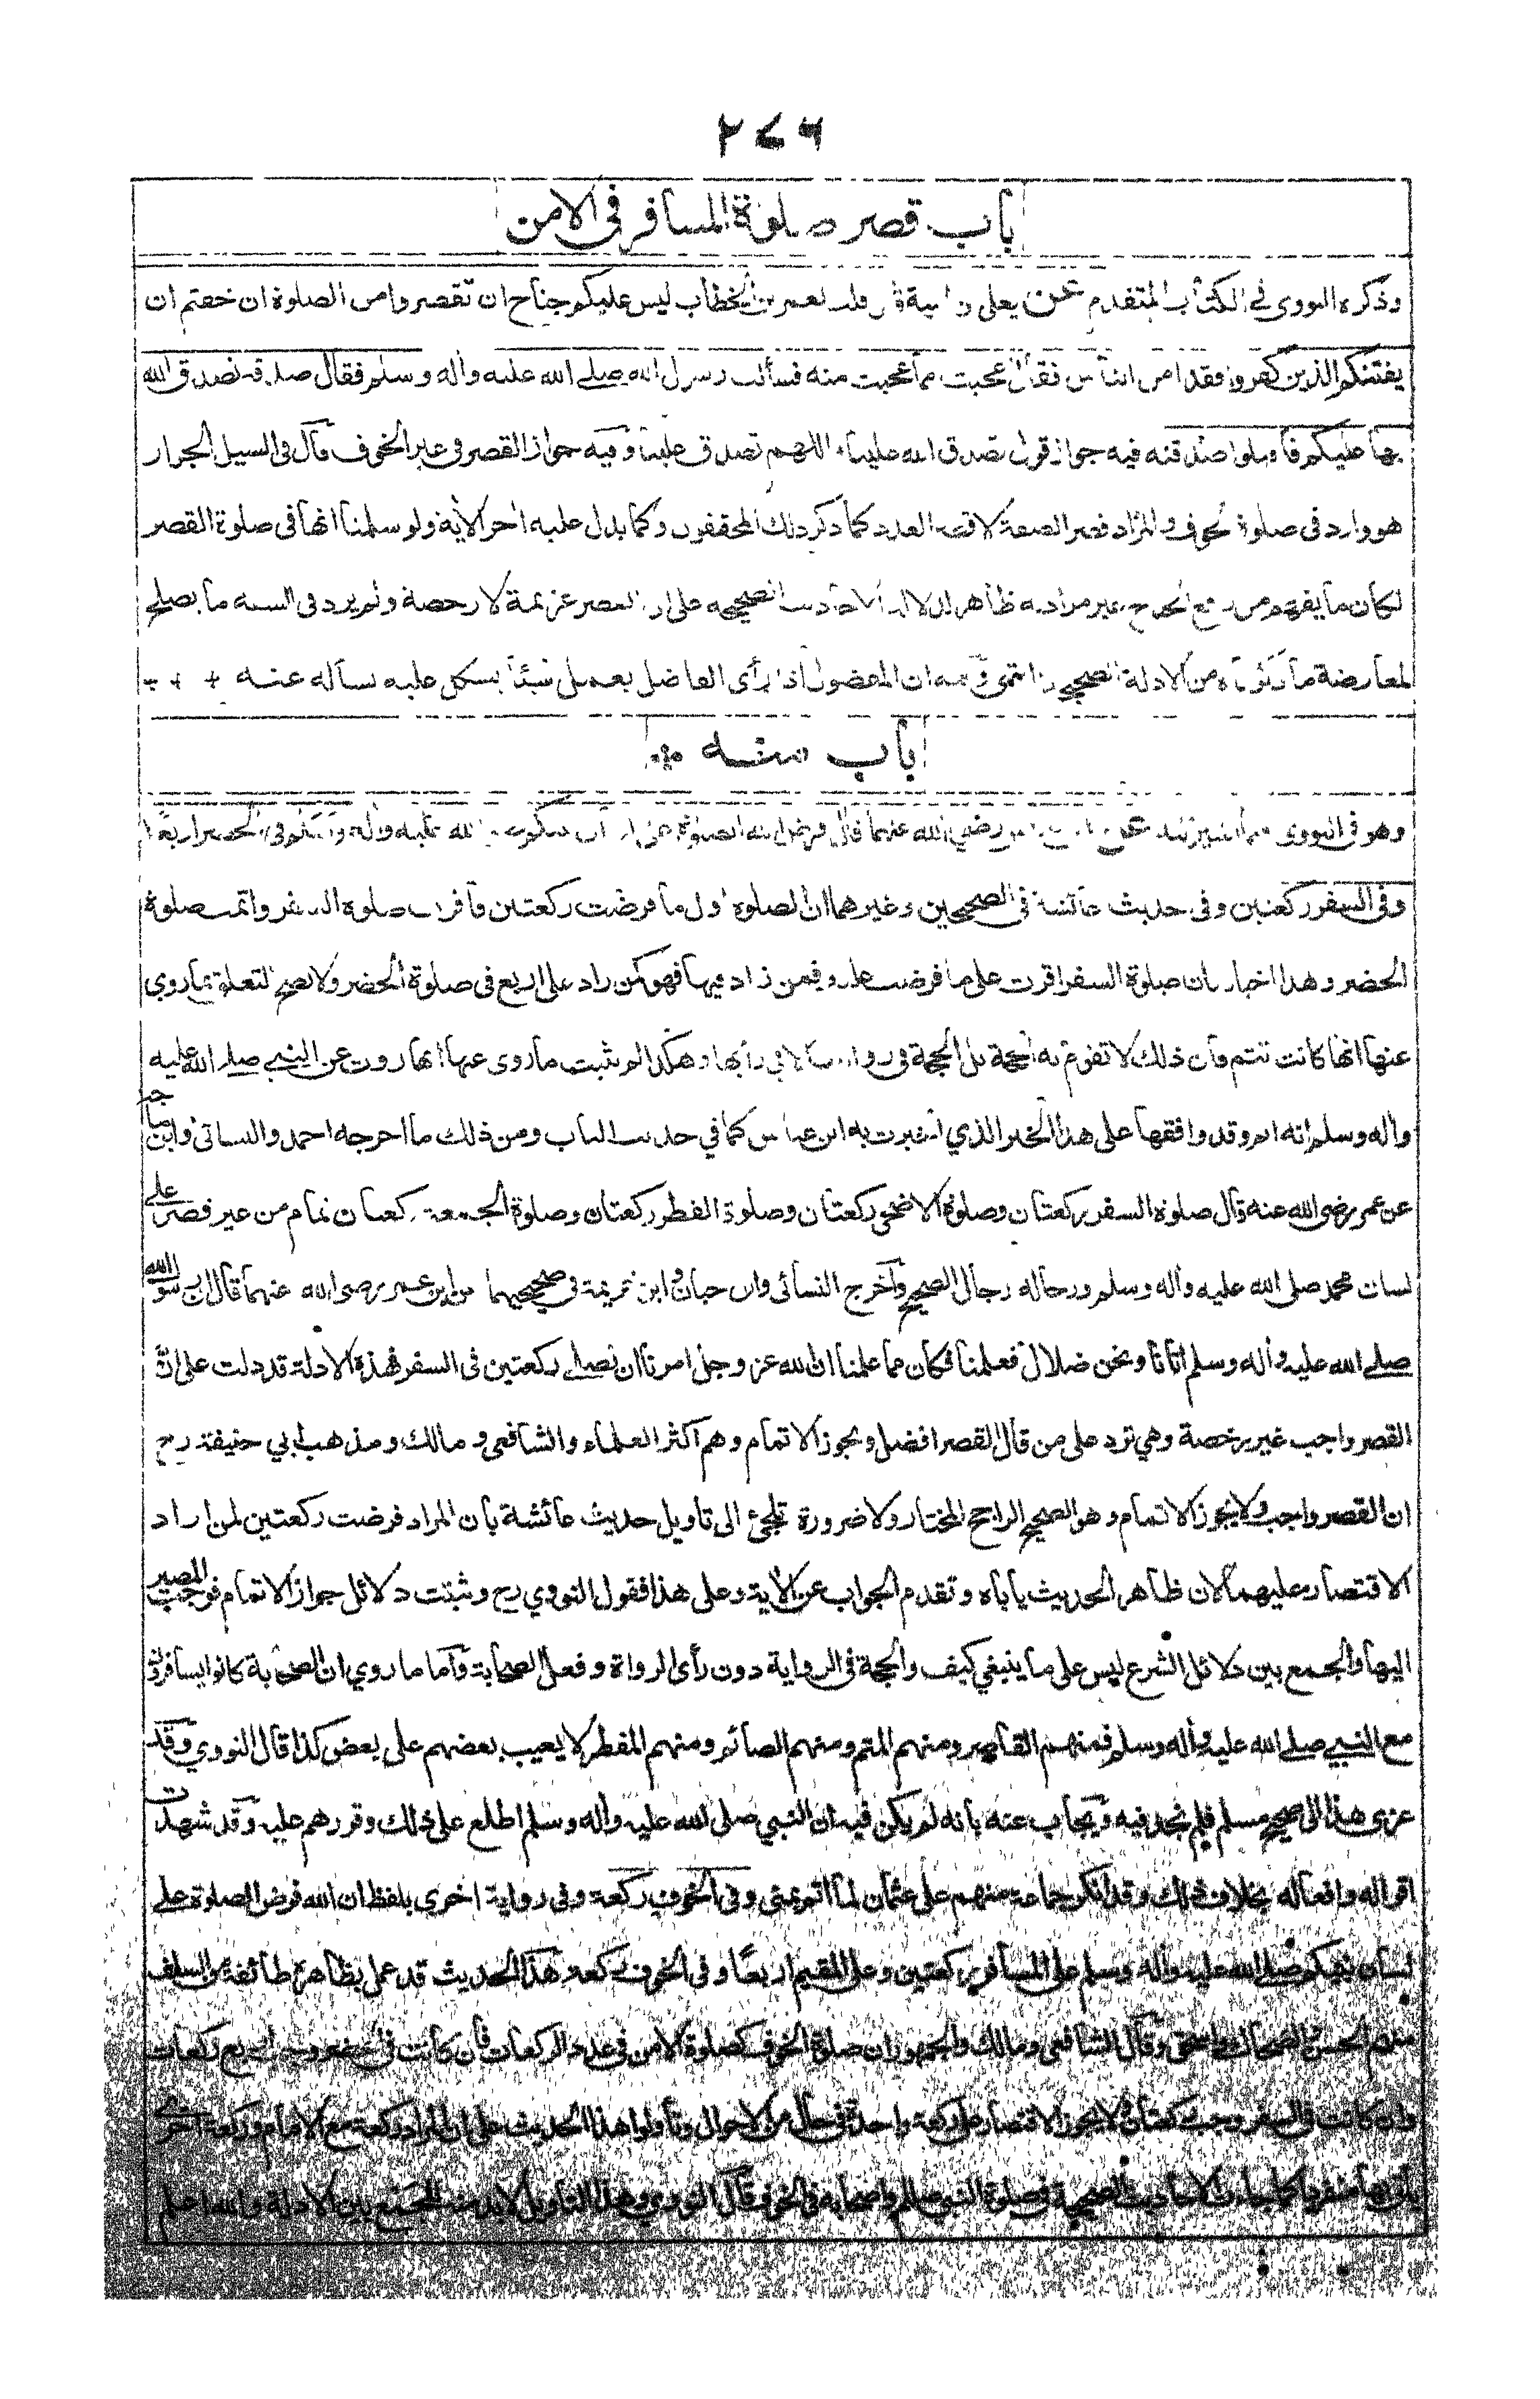 ٢٧٦
باب قصر صلوة المسافر فى الامن
وذكره النووى في الكتاب المتقدم عن يعلى بن امية قال قلت لعمر بن الخطاب ليس عليكم جناح ان تقصروا من الصلوة ان خفتم ان
يفتنكم الذين كفروا فقد امن الناس فقال عجبت مما عجبت منه فسألت رسول الله صلے الله عليه واله وسلم فقال صدقة تصدق الله
بها عليكم فاقبلوا صدقته فيه جواز قول تصدق الله علينا واللهم تصدق علينا وفيه جواز القصر فى غير الخوف قال فى السيل الجرار
هو وارد فى صلوة الخوف والمراد قصر الصفة لا قصر العدد كما ذكر ذلك المحققون وكما يدل عليه اخر الاية ولو سلمنا انها فى صلوة القصر
لكان ما يفهم من رفع الجناح غير مراد به ظاهره لدلالة الاحاديث الصحيحة على ان القصر عزيمة لا رخصة ولم يرد فى السنة ما يصلح
لمعارضة ما ذكرناه من الادلة الصحيحة انتهى وفيه ان المفضول اذا رأى الفاضل يعمل شيئا يشكل عليه يسأله عنه + + +
باب منه
وهو فى النووى فيما اشير اليه عن ابن عباس رضي الله عنهما قال فرض الله الصلوة على لسان نبيكم صلى الله عليه واله وسلم فى الحضر اربعا
وفى السفر ركعتين وفى حديث عائشة فى الصحيحين وغيرهما ان الصلوة اول ما فرضت ركعتين فاقرت صلوة السفر واتمت صلوة
الحضر وهذا اخبار بان صلوة السفر اقرت على ما فرضت عليه فمن زاد فيها فهو كمن زاد على اربع فى صلوة الحضر ولا يصح التعلق بما روي
عنها انها كانت تتم فان ذلك لا تقوم به الحجة بل الحجة فى روايتها لا في رأيها وهكذا لم يثبت ما روى عنها انها روت عن النبي صلے الله عليه
واله وسلم انه اتم وقد وافقها على هذا الخبر الذي اخبرت به ابن عباس كما في حديث الباب ومن ذلك ما اخرجه احمد والنسائى وابن ماجه
عن عمر رضي الله عنه قال صلوة السفر ركعتان وصلوة الاضحى ركعتان وصلوة الفطر ركعتان وصلوة الجمعة ركعتان تمام من غير قصر على
لسان محمد صلى الله عليه واله وسلم ورجاله رجال الصحيح واخرج النسائى وابن حبان وابن خزيمة فى صحيحيهما عن ابن عمر رضى الله عنهما قال ان رسول الله
صلے الله عليه واله وسلم اتانا ونحن ضلال فعلمنا فكان مما علمنا ان الله عز وجل امرنا ان نصلے ركعتين فى السفر فهذه الادلة قد دلت على ان
القصر واجب غير رخصة وهي ترد على من قال القصر افضل ويجوز الاتمام وهم اكثر العلماء والشافعى ومالك ومذهب ابي حنيفة رح
ان القصر واجب ولا يجوز الاتمام وهو الصحيح الراجح المختار ولا ضرورة تلجئ الى تاويل حديث عائشة بان المراد فرضت ركعتين لمن اراد
الاقتصار عليهما لان ظاهر الحديث ياباه وتقدم الجواب عن الاية وعلى هذا فقول النووي رح وثبتت دلائل جواز الاتمام فوجب المصير
اليها والجمع بين دلائل الشرع ليس على ما ينبغي كيف والحجة فى الرواية دون رأى الرواة وفعل الصحابة واما ما روي ان الصحابة كانوا يسافرون
مع النبي صلے الله عليه واله وسلم فمنهم القاصر ومنهم المتم ومنهم الصائم ومنهم المفطر لا يعيب بعضهم على بعض كذا قال النووي وقد
عزى هذا الى صحيح مسلم فلم نجد فيه ويجاب عنه بانه لم يكن فيه ان النبي صلى الله عليه واله وسلم اطلع على ذلك وقررهم عليه وقد شهدت
اقواله وافعاله بخلاف ذلك وقد انكر جماعة منهم على عثمان لما اتم بمنى وفى الخوف ركعة وفى رواية اخرى بلفظ ان الله فرض الصلوة على
لسان نبيكم صلى الله عليه واله وسلم على المسافر ركعتين وعلى المقيم اربعا وفى الخوف ركعة هذا الحديث قد عمل بظاهره طائفة من السلف
منهم الحسن والضحاك واسحق وقال الشافعى ومالك والجمهور ان صلوة الخوف كصلوة الامن فى عدد الركعات فان كانت فى الحضر وجب اربع ركعات
وان كانت فى السفر وجب ركعتان ولا يجوز الاقتصار على ركعة واحدة فى حال من الاحوال وتأولوا هذا الحديث على ان المراد ركعة مع الامام وركعة اخرى
يأتى بها منفردا كما جاءت الاحاديث الصحيحة فى صلوة النبي صلعم واصحابه فى الخوف قال النووي وهذا التأويل لا بد منه للجمع بين الادلة والله اعلم